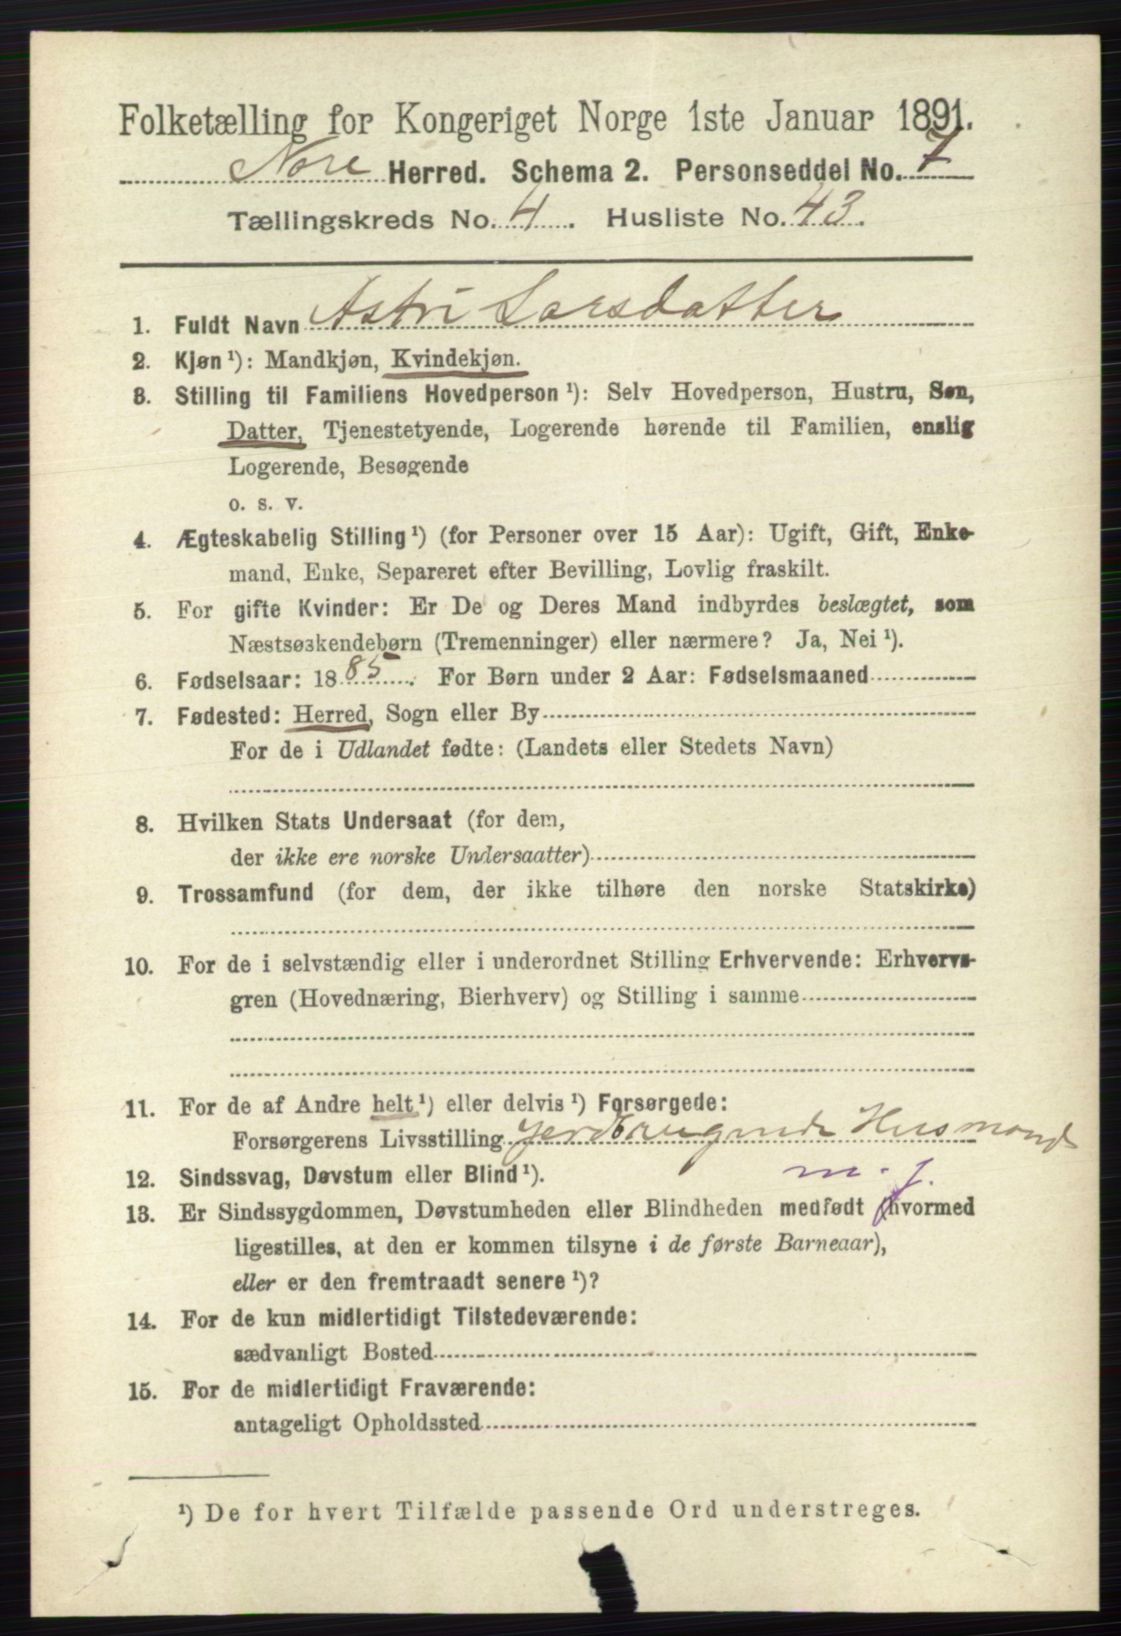 Folketælling for Kongeriget Norge 1ste Januar 1891.
Nore Herred. Schema 2. Personseddel No. 7
Tællingskreds No. 4. Husliste No. 43.
1. Fuldt Navn Astri Larsdatter
2. Kjøn ¹): Mandkjøn, Kvindekjøn.
3. Stilling til Familiens Hovedperson ¹): Selv Hovedperson, Hustru, Søn,
Datter, Tjenestetyende, Logerende hørende til Familien, enslig
Logerende, Besøgende
o. s. v.
4. Ægteskabelig Stilling ¹) (for Personer over 15 Aar): Ugift, Gift, Enke-
mand, Enke, Separeret efter Bevilling, Lovlig fraskilt.
5. For gifte Kvinder: Er De og Deres Mand indbyrdes beslægtet, som
Næstsøskendebørn (Tremenninger) eller nærmere? Ja, Nei ¹).
6. Fødselsaar: 1885. For Børn under 2 Aar: Fødselsmaaned
7. Fødested: Herred, Sogn eller By
For de i Udlandet fødte: (Landets eller Stedets Navn)
8. Hvilken Stats Undersaat (for dem,
der ikke ere norske Undersaatter)
9. Trossamfund (for dem, der ikke tilhøre den norske Statskirke)
10. For de i selvstændig eller i underordnet Stilling Erhvervende: Erhvervs-
gren (Hovednæring, Bierhverv) og Stilling i samme
11. For de af Andre helt ¹) eller delvis ¹) Forsørgede:
Forsørgerens Livsstilling jordbrugende Husmand
12. Sindssvag, Døvstum eller Blind ¹). m. j.
13. Er Sindssygdommen, Døvstumheden eller Blindheden medfødt (hvormed
ligestilles, at den er kommen tilsyne i de første Barneaar),
eller er den fremtraadt senere ¹)?
14. For de kun midlertidigt Tilstedeværende:
sædvanligt Bosted
15. For de midlertidigt Fraværende:
antageligt Opholdssted
¹) De for hvert Tilfælde passende Ord understreges.